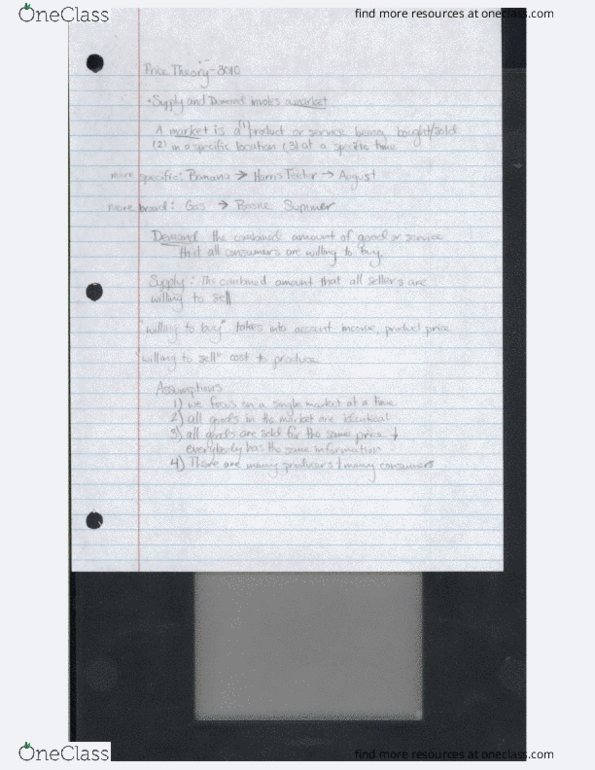 OneClass
find more resources at oneclass.com
Price Theory-3010
•Supply and Demand a market
A market is a (1) product or service being bought/sold
(2) in a specific location (3) at a specific time
more specific: Banana → Harris Teeter → August
more broad: Gas → Boone Summer
Demand: the combined amount of good or service
that all consumers are willing to buy.
Supply: The combined amount that all sellers are
willing to sell
"willing to buy" takes into account income, product price
"willing to sell" cost to produce
Assumptions
1) we focus on a single market at a time
2) all goods in the market are identical
3) all goods are sold for the same price +
everybody has the same information
4) There are many producers + many consumers
OneClass
find more resources at oneclass.com